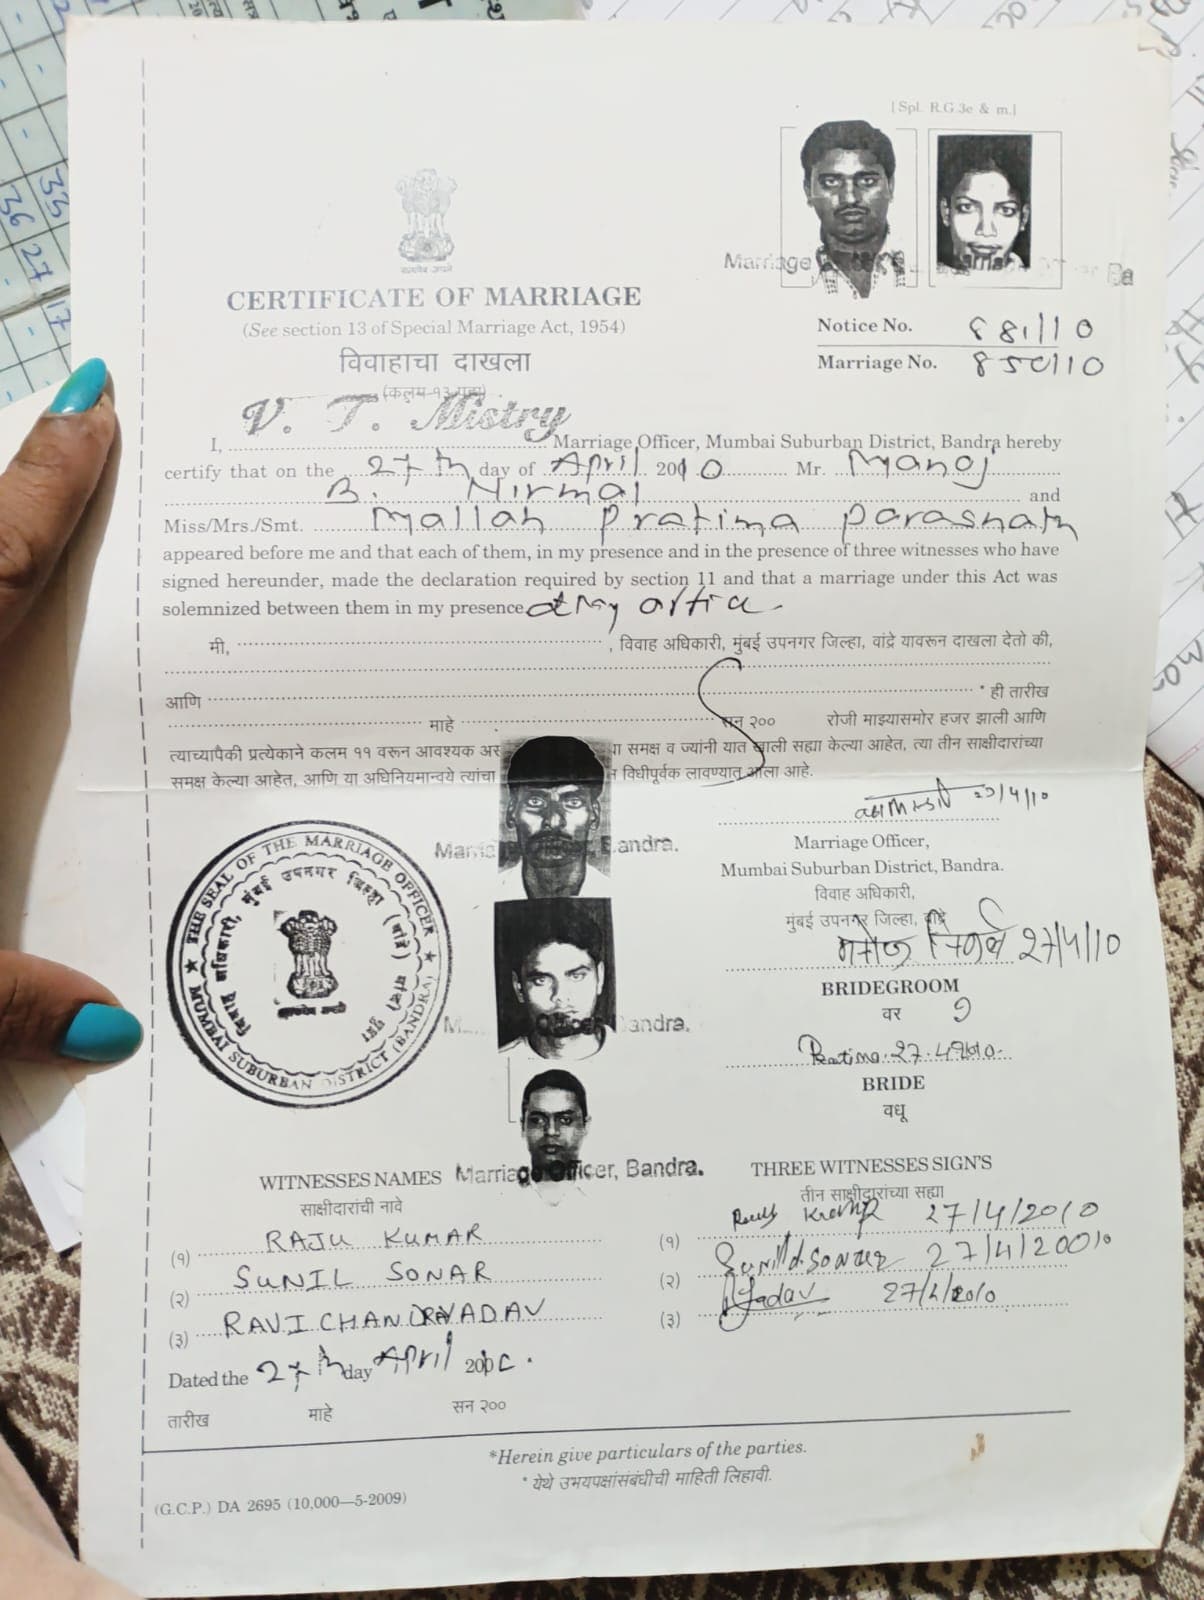 [Spl. R.G 3e & m.]
सत्यमेव जयते
CERTIFICATE OF MARRIAGE
(See section 13 of Special Marriage Act, 1954)
विवाहाचा दाखला
(कलम-१३ पहा)
Notice No. 881/10
Marriage No. 850/10
V. T. Mistry
I, Marriage Officer, Mumbai Suburban District, Bandra hereby
certify that on the 27th day of April 2010 Mr. Manoj
B. Nirmal and
Miss/Mrs./Smt. Mallah Pratima Parasnath
appeared before me and that each of them, in my presence and in the presence of three witnesses who have
signed hereunder, made the declaration required by section 11 and that a marriage under this Act was
solemnized between them in my presence at my office.
मी, , विवाह अधिकारी, मुंबई उपनगर जिल्हा, वांद्रे यावरून दाखला देतो की,
आणि * ही तारीख
माहे सन २०० रोजी माझ्यासमोर हजर झाली आणि
त्याच्यापैकी प्रत्येकाने कलम ११ वरून आवश्यक अस समक्ष व ज्यांनी यात खाली सह्या केल्या आहेत, त्या तीन साक्षीदारांच्या
समक्ष केल्या आहेत, आणि या अधिनियमान्वये त्यांचा विधीपूर्वक लावण्यात आला आहे.
27/4/10
Marriage Officer,
Mumbai Suburban District, Bandra.
विवाह अधिकारी,
मुंबई उपनगर जिल्हा, वांद्रे
मनोज निर्मल 27/4/10
BRIDEGROOM
वर
Pratima 27.4.2010
BRIDE
वधू
THE SEAL OF THE MARRIAGE OFFICER
MUMBAI SUBURBAN DISTRICT (BANDRA)
विवाह अधिकारी, मुंबई उपनगर जिल्हा (वांद्रे)
Marriage Officer, Bandra.
Bandra.
Marriage Officer, Bandra.
WITNESSES NAMES
साक्षीदारांची नावे
THREE WITNESSES SIGN'S
तीन साक्षीदारांच्या सह्या
(१) RAJU KUMAR
(१) 27/4/2010
(२) SUNIL SONAR
(२) 27/4/2010
(३) RAVI CHANDRA YADAV
(३) Yadav 27/4/2010
Dated the 27th day April 2010.
तारीख माहे सन २००
*Herein give particulars of the parties.
* येथे उभयपक्षांसंबंधीची माहिती लिहावी.
(G.C.P.) DA 2695 (10,000—5-2009)